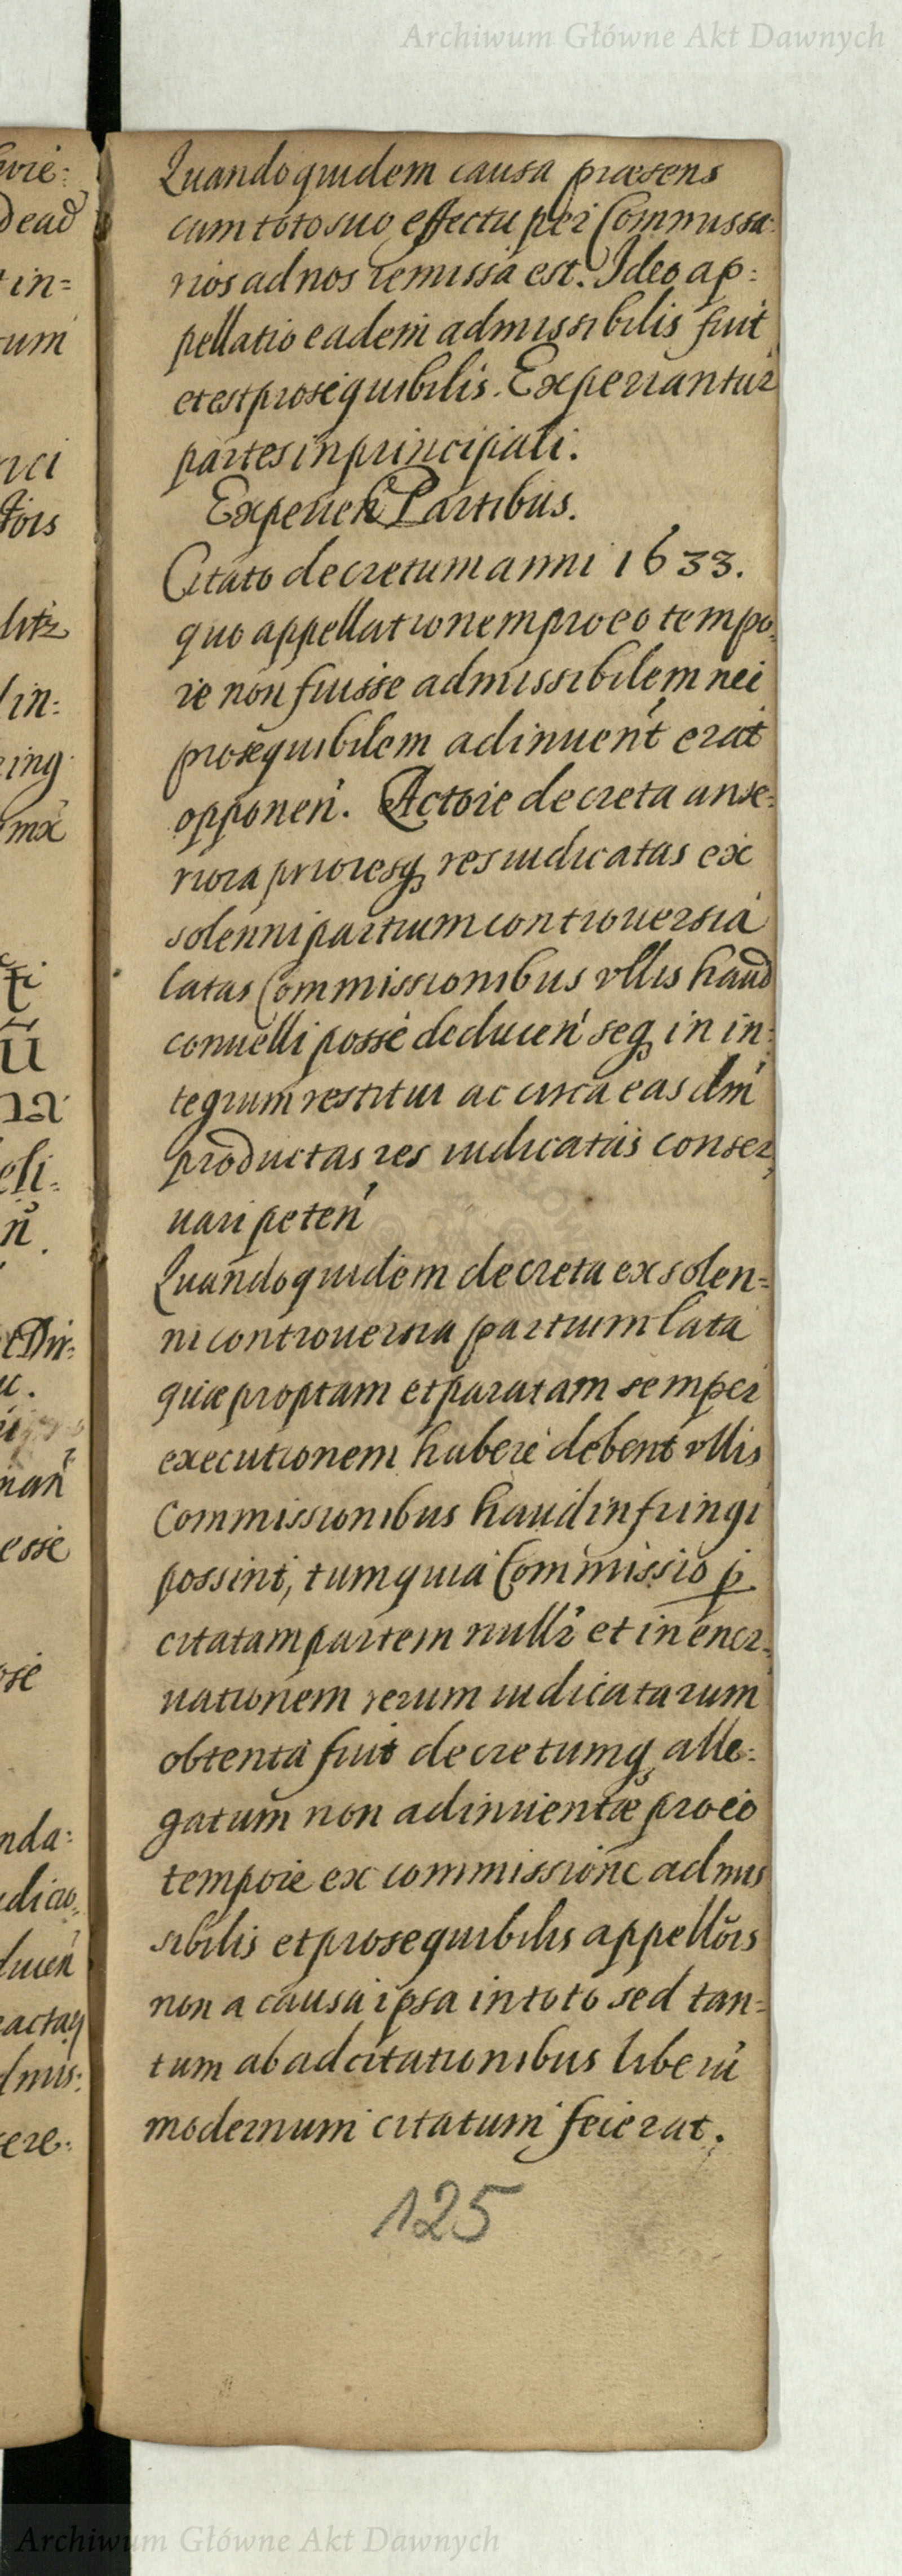 Archiwum Główne Akt Dawnych
Quandoquidem causa præsens
cum toto suo effectu per Commissa:
rios ad nos remissa est. Ideo ap:
pellatio eadem admissibilis fuit
et est prosequibilis. Experiantur
partes in principali.
Experien Partibus.
Citato decretum anni 1633.
quo appellationem pro eo tempo,
re non fuisse admissibilem nec
prosequibilem adinuent erat
opponen. Actore decreta ante:
riora prioresq res iudicatas ex
solenni partium controuersia
latas Commissionibus vllis haud
conuelli posse deducen seq in in:
tegrum restitui ac circa eas dm
productas res iudicatas conser,
uari peten
Quandoquidem decreta ex solen=
ni controuersia partium lata
quæ proptam et paratam semper
executionem habere debent vllis
Commissionibus haud infringi
possint, tum quia Commissio p
citatam partem nullr et in ener:
uationem rerum iudicatarum
obtenta fuit decretumq alle:
gatum non adinuentæ pro eo
tempore ex commissione admis
sibilis et prosequibilis appellõis
non a causa ipsa in toto sed tan=
tum ab adcitationibus liberũ
modernum citatum fecerat.
125
vrie:
Dead
in=
tum
rici
litz
in:
ing
mx
na
eli:
ñ.
nan
esse
ose
nda:
dicio,
ducen
dmis:
ere:
Archiwum Główne Akt Dawnych